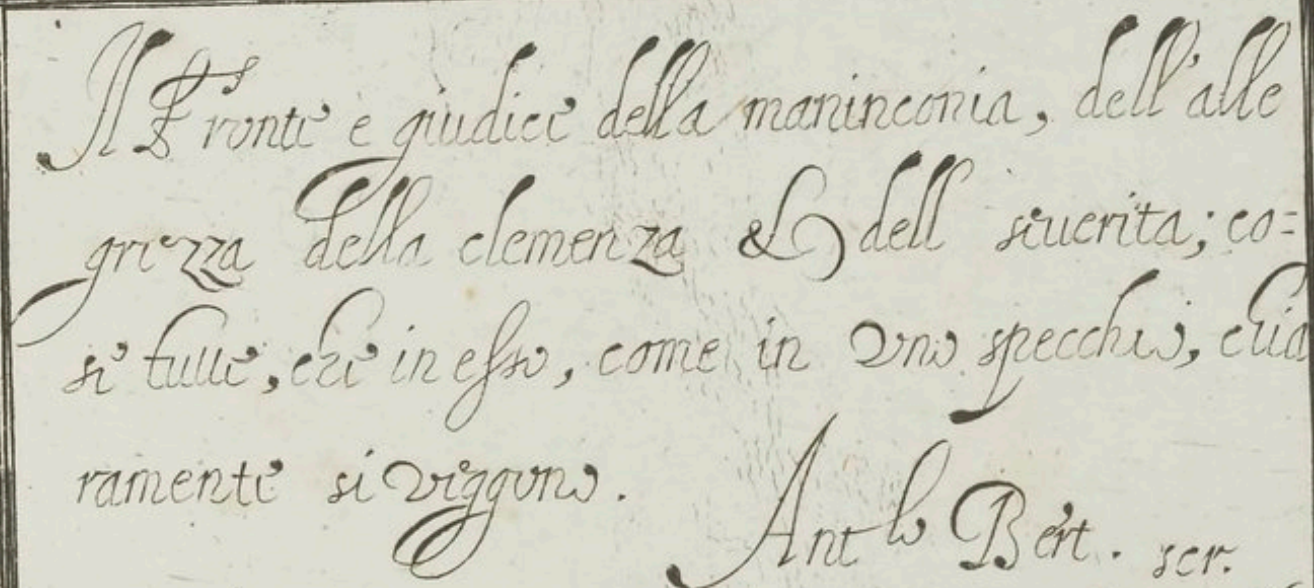 Il Fronte e giudice della maninconia, dell'alle
grezza della clemenza & dell seuerita; co=
se tutte, che in esso, come in vno specchio, chia
ramente si veggono.
Ant.lo Bert. scr.